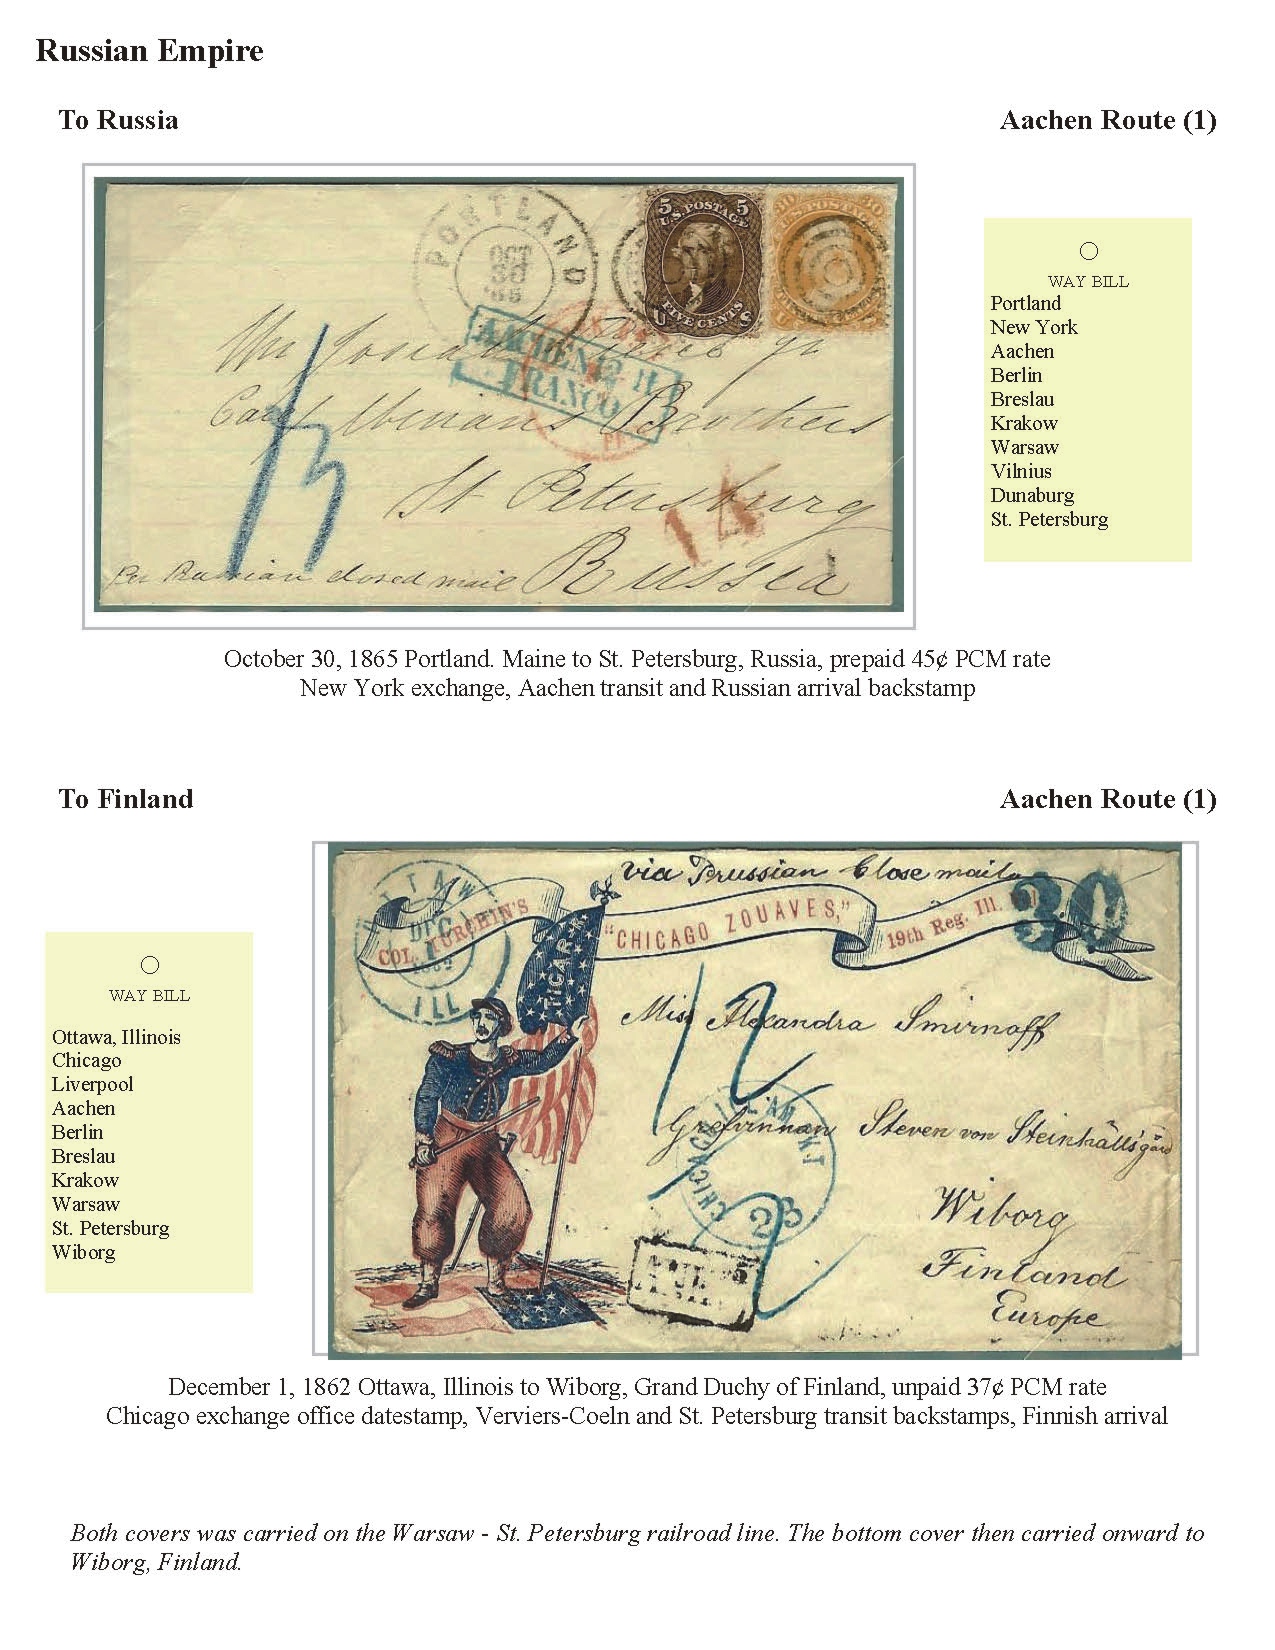 Russian Empire
To Russia
Aachen Route (1)
PORTLAND
OCT
30
'65
5 5
U.S. POSTAGE
FIVE CENTS
U S
30 30
U.S. POSTAGE
AACHEN
FRANCO
Brothers
St Petersburg
14
Russia
Per Russian closed mail
WAY BILL
Portland
New York
Aachen
Berlin
Breslau
Krakow
Warsaw
Vilnius
Dunaburg
St. Petersburg
October 30, 1865 Portland. Maine to St. Petersburg, Russia, prepaid 45¢ PCM rate
New York exchange, Aachen transit and Russian arrival backstamp
To Finland
Aachen Route (1)
WAY BILL
Ottawa, Illinois
Chicago
Liverpool
Aachen
Berlin
Breslau
Krakow
Warsaw
St. Petersburg
Wiborg
via Prussian Close mail
COL. TURCHIN'S
"CHICAGO ZOUAVES,"
19th Reg. Ill.
30
DEC
1862
ILL
Miss Alexandra Smirnoff
12
Grefvinnan Steven von Steinhälls'gård
CHICAGO ILL AM. PKT
23
Wiborg
Finland
Europe
December 1, 1862 Ottawa, Illinois to Wiborg, Grand Duchy of Finland, unpaid 37¢ PCM rate
Chicago exchange office datestamp, Verviers-Coeln and St. Petersburg transit backstamps, Finnish arrival
Both covers was carried on the Warsaw - St. Petersburg railroad line. The bottom cover then carried onward to
Wiborg, Finland.